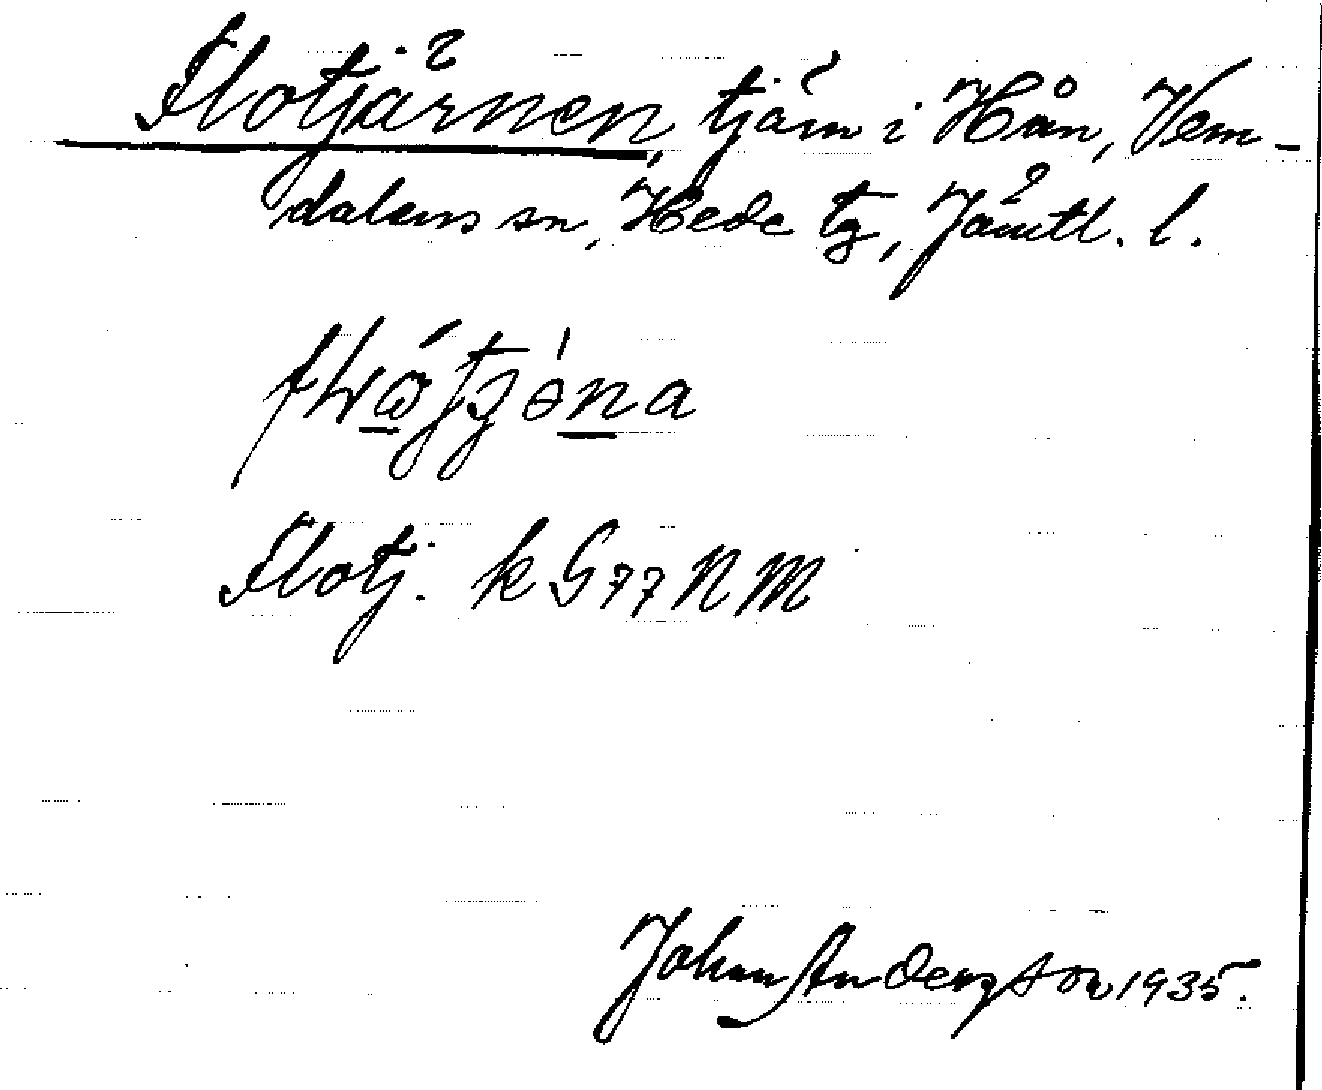 Flotjärnen, tjärn i Hån, Vem-
dalens sn, Hede tg, Jämtl. l.
Flotj. k G 77 N M
Johan Anderzson 1935.